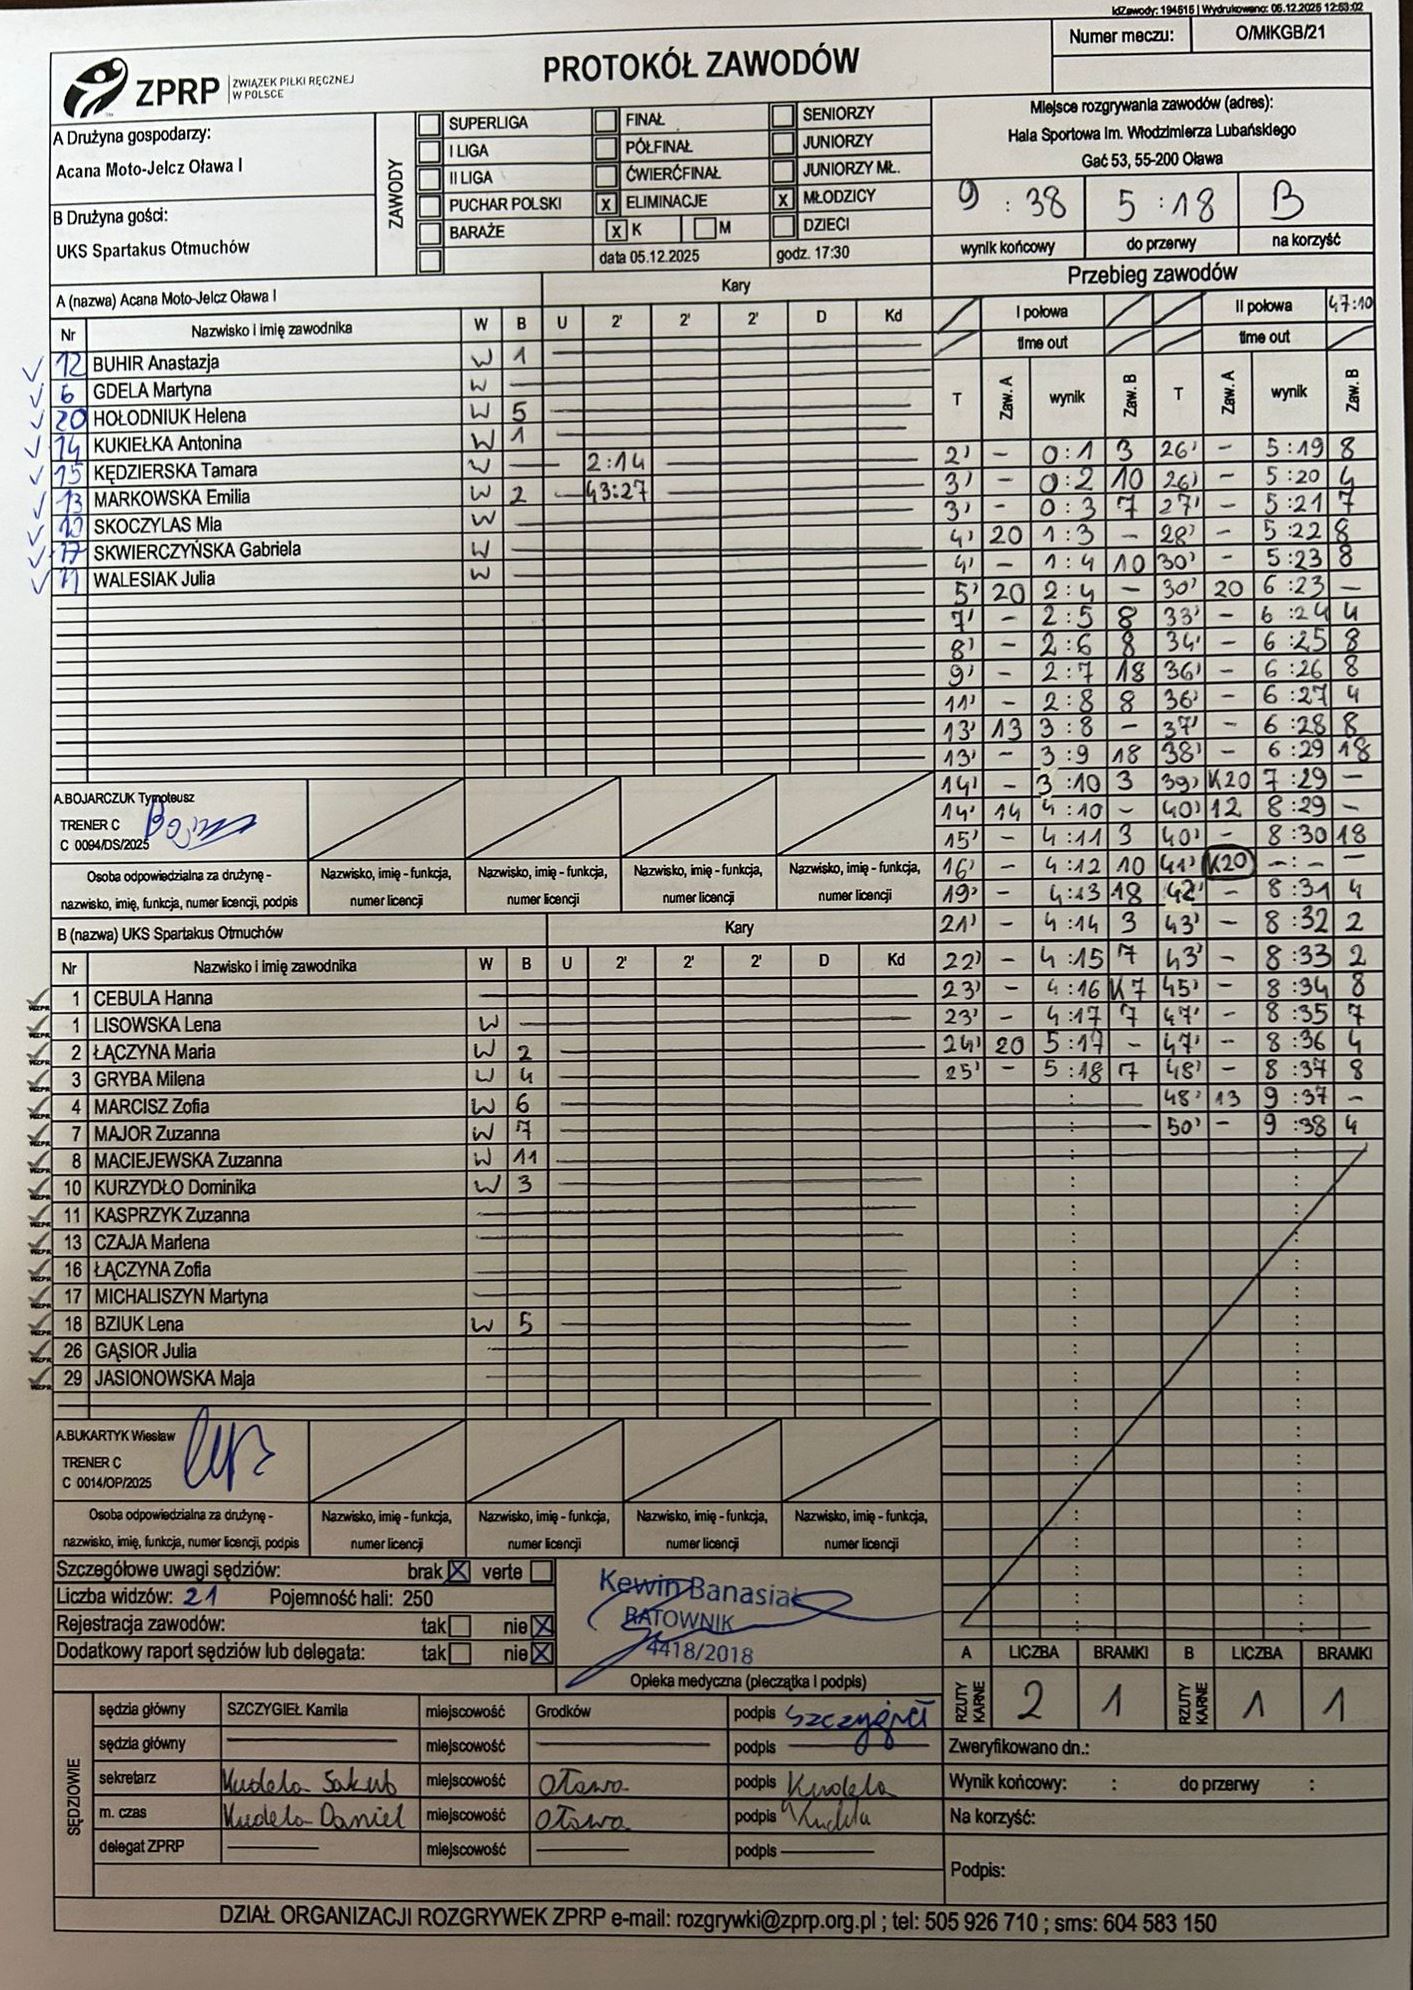 IdZawody: 194515 | Wydrukowano: 05.12.2025 12:53:02
Numer meczu: O/MIKGB/21
ZPRP ZWIĄZEK PIŁKI RĘCZNEJ W POLSCE
PROTOKÓŁ ZAWODÓW
A Drużyna gospodarzy:
Acana Moto-Jelcz Oława I
B Drużyna gości:
UKS Spartakus Otmuchów
ZAWODY
SUPERLIGA FINAŁ SENIORZY
I LIGA PÓŁFINAŁ JUNIORZY
II LIGA ĆWIERĆFINAŁ JUNIORZY MŁ.
PUCHAR POLSKI x ELIMINACJE x MŁODZICY
BARAŻE x K M DZIECI
data 05.12.2025 godz. 17:30
Miejsce rozgrywania zawodów (adres):
Hala Sportowa Im. Włodzimierza Lubańskiego
Gać 53, 55-200 Oława
9 : 38 5 : 18 B
wynik końcowy do przerwy na korzyść
A (nazwa) Acana Moto-Jelcz Oława I Kary
Nr Nazwisko i imię zawodnika W B U 2' 2' 2' D Kd
12 BUHIR Anastazja W 1
6 GDELA Martyna W
20 HOŁODNIUK Helena W 5
14 KUKIEŁKA Antonina W 1
15 KĘDZIERSKA Tamara W — 2:14
13 MARKOWSKA Emilia W 2 43:27
SKOCZYLAS Mia W
17 SKWIERCZYŃSKA Gabriela W
11 WALESIAK Julia W
A.BOJARCZUK Tymoteusz
TRENER C
C 0094/DS/2025
Osoba odpowiedzialna za drużynę - nazwisko, imię, funkcja, numer licencji, podpis
Nazwisko, imię - funkcja, numer licencji
Nazwisko, imię - funkcja, numer licencji
Nazwisko, imię - funkcja, numer licencji
Nazwisko, imię - funkcja, numer licencji
B (nazwa) UKS Spartakus Otmuchów Kary
Nr Nazwisko i imię zawodnika W B U 2' 2' 2' D Kd
1 CEBULA Hanna
1 LISOWSKA Lena W
2 ŁĄCZYNA Maria W 2
3 GRYBA Milena W 4
4 MARCISZ Zofia W 6
7 MAJOR Zuzanna W 7
8 MACIEJEWSKA Zuzanna W 11
10 KURZYDŁO Dominika W 3
11 KASPRZYK Zuzanna
13 CZAJA Marlena
16 ŁĄCZYNA Zofia
17 MICHALISZYN Martyna
18 BZIUK Lena W 5
26 GĄSIOR Julia
29 JASIONOWSKA Maja
A.BUKARTYK Wiesław
TRENER C
C 0014/OP/2025
Osoba odpowiedzialna za drużynę - nazwisko, imię, funkcja, numer licencji, podpis
Nazwisko, imię - funkcja, numer licencji
Nazwisko, imię - funkcja, numer licencji
Nazwisko, imię - funkcja, numer licencji
Nazwisko, imię - funkcja, numer licencji
Przebieg zawodów
I połowa II połowa 47:10
time out time out
T Zaw. A wynik Zaw. B T Zaw. A wynik Zaw. B
2' - 0:1 3 26' - 5:19 8
3' - 0:2 10 26' - 5:20 4
3' - 0:3 7 27' - 5:21 7
4' 20 1:3 - 28' - 5:22 8
4' - 1:4 10 30' - 5:23 8
5' 20 2:4 - 30' 20 6:23 -
7' - 2:5 8 33' - 6:24 4
8' - 2:6 8 34' - 6:25 8
9' - 2:7 18 36' - 6:26 8
11' - 2:8 8 36' - 6:27 4
13' 13 3:8 - 37' - 6:28 8
13' - 3:9 18 38' - 6:29 18
14' - 3:10 3 39' K20 7:29 -
14' 14 4:10 - 40' 12 8:29 -
15' - 4:11 3 40' - 8:30 18
16' - 4:12 10 41' K20 -:- -
19' - 4:13 18 42' - 8:31 4
21' - 4:14 3 43' - 8:32 2
22' - 4:15 7 43' - 8:33 2
23' - 4:16 K7 45' - 8:34 8
23' - 4:17 7 47' - 8:35 7
24' 20 5:17 - 47' - 8:36 4
25' - 5:18 7 48' - 8:37 8
48' 13 9:37 -
50' - 9:38 4
Szczegółowe uwagi sędziów: brak x verte
Liczba widzów: 21 Pojemność hali: 250
Rejestracja zawodów: tak nie x
Dodatkowy raport sędziów lub delegata: tak nie x
Kewin Banasiak
RATOWNIK
4418/2018
Opieka medyczna (pieczątka i podpis)
A LICZBA BRAMKI B LICZBA BRAMKI
RZUTY KARNE 2 1 RZUTY KARNE 1 1
SĘDZIOWIE
sędzia główny SZCZYGIEŁ Kamila miejscowość Grodków podpis Szczygieł
sędzia główny miejscowość podpis
sekretarz Kudela Jakub miejscowość Oława podpis Kudela
m. czas Kudela Daniel miejscowość Oława podpis Kudela
delegat ZPRP miejscowość podpis
Zweryfikowano dn.:
Wynik końcowy: : do przerwy :
Na korzyść:
Podpis:
DZIAŁ ORGANIZACJI ROZGRYWEK ZPRP e-mail: rozgrywki@zprp.org.pl ; tel: 505 926 710 ; sms: 604 583 150